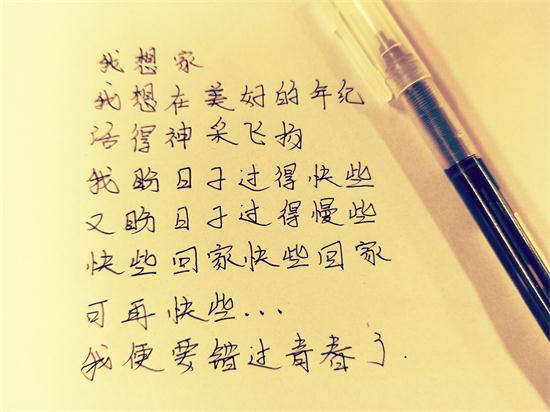 我想家
我想在美好的年纪
活得神采飞扬
我盼日子过得快些
又盼日子过得慢些
快些回家快些回家
可再快些...
我便要错过青春了.